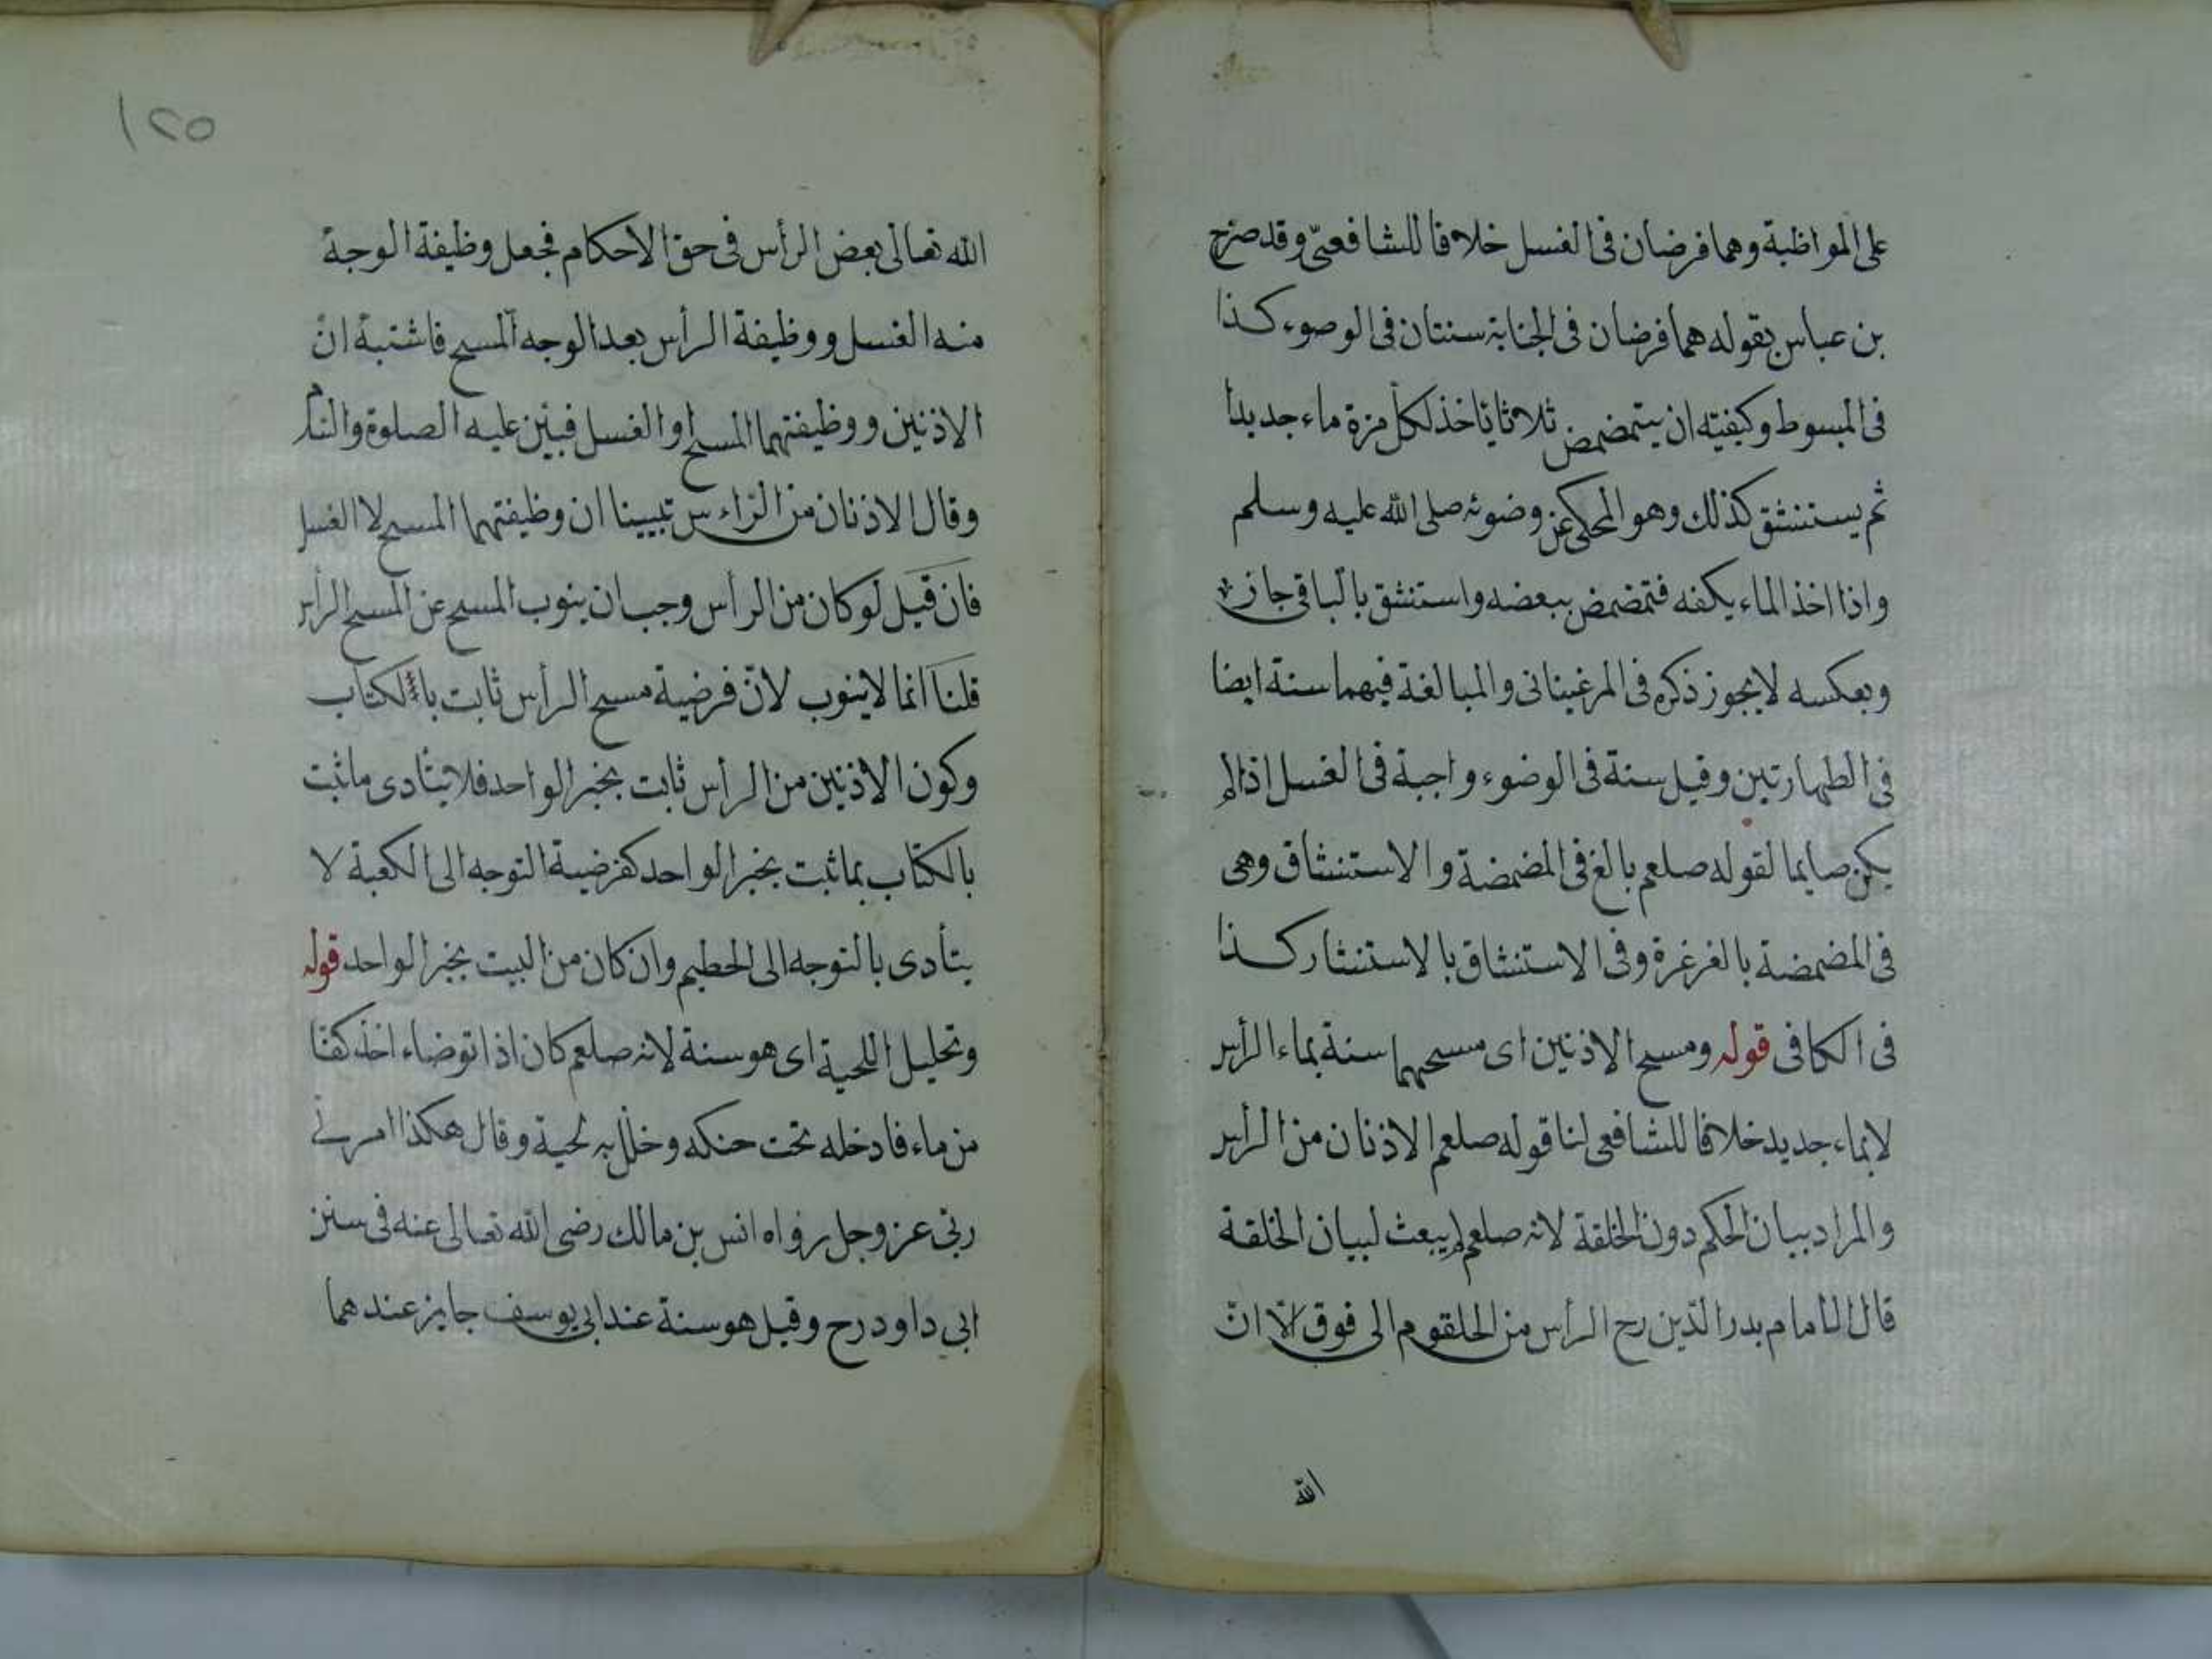 على المواظبة وهما فرضان فى الغسل خلافا للشافعىّ وقد صرح
بن عباس بقوله هما فرضان فى الجنابة سنتان فى الوضوء كذا
فى المبسوط وكيفيته ان يتمضمض ثلاثا ياخذ لكل مرة ماء جديدا
ثم يستنشق كذلك وهو المحكى عن وضوئه صلى الله عليه وسلم
واذا اخذ الماء بكفه فتمضمض ببعضه واستنشق بالباقى جاز
وبعكسه لا يجوز ذكره فى المرغينانى والمبالغة فيهما سنة ايضا
فى الطهارتين وقيل سنة فى الوضوء واجبة فى الغسل اذا لم
يكن صايما لقوله صلعم بالغ فى المضمضة والاستنشاق وهى
فى المضمضة بالغرغرة وفى الاستنشاق بالاستنثار كذا
فى الكافى قوله ومسح الاذنين اى مسحهما سنة بماء الرأس
لا بماء جديد خلافا للشافعى لنا قوله صلعم الاذنان من الرأس
والمراد ببيان الحكم دون الخلقة لانه صلعم لم يبعث لبيان الخلقة
قال الامام بدر الدّين رح الرأس من الحلقوم الى فوق الّا انّ
الله
١٢٥
الله تعالى بعض الرأس فى حق الاحكام فجعل وظيفة الوجه
منه الغسل ووظيفة الرأس بعد الوجه المسح فاشتبه انّ
الاذنين ووظيفتهما المسح او الغسل فبيّن عليه الصلوة والسلام
وقال الاذنان من الراءس تبيينا ان وظيفتهما المسح لا الغسل
فان قيل لو كان من الرأس وجب ان ينوب المسح عن المسح الرأس
قلنا انما لا ينوب لانّ فرضية مسح الرأس ثابت بالكتاب
وكون الاذنين من الرأس ثابت بخبر الواحد فلا يتادى ما ثبت
بالكتاب بما ثبت بخبر الواحد كفرضية التوجه الى الكعبة لا
يتأدى بالتوجه الى الحطيم وان كان من البيت بخبر الواحد قوله
وتخليل اللحية اى هو سنة لانه صلعم كان اذا توضاء اخذ كفا
من ماء فادخله تحت حنكه وخلّل به لحية وقال هكذا امرنى
ربّى عز وجل رواه انس بن مالك رضى الله تعالى عنه فى سنن
ابى داود رح وقيل هو سنة عند ابى يوسف جايز عندهما